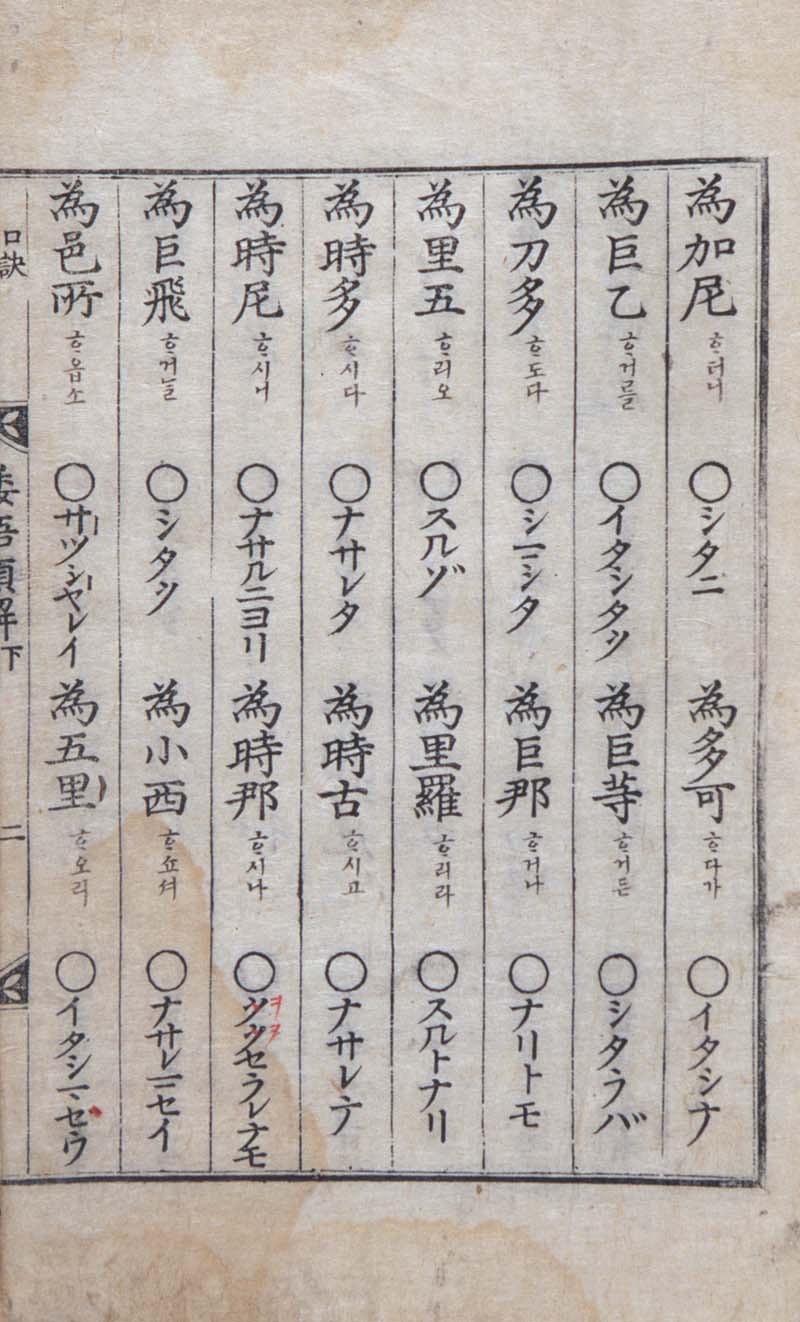 為加尼 ᄒᆞ더니 ○シタニ 為多可 ᄒᆞ다가 ○イタシナ
為巨乙 ᄒᆞ거ᄅᆞᆯ ○イタシタツ 為巨等 ᄒᆞ거든 ○シタラバ
為刀多 ᄒᆞ도다 ○シマシタ 為巨那 ᄒᆞ거나 ○ナリトモ
為里五 ᄒᆞ리오 ○スルゾ 為里羅 ᄒᆞ리라 ○スルトナリ
為時多 ᄒᆞ시다 ○ナサレタ 為時古 ᄒᆞ시고 ○ナサレテ
為時尼 ᄒᆞ시니 ○ナサルニヨリ 為時那 ᄒᆞ시나 ○セラレナモ
為巨飛 ᄒᆞ거ᄂᆞᆯ ○シタツ 為小西 ᄒᆞ쇼셔 ○ナサレマセイ
為邑所 ᄒᆞ옵소 ○サツシヤレイ 為五里 ᄒᆞ오리 ○イタシマゼウ
口訣 倭語類解下 二